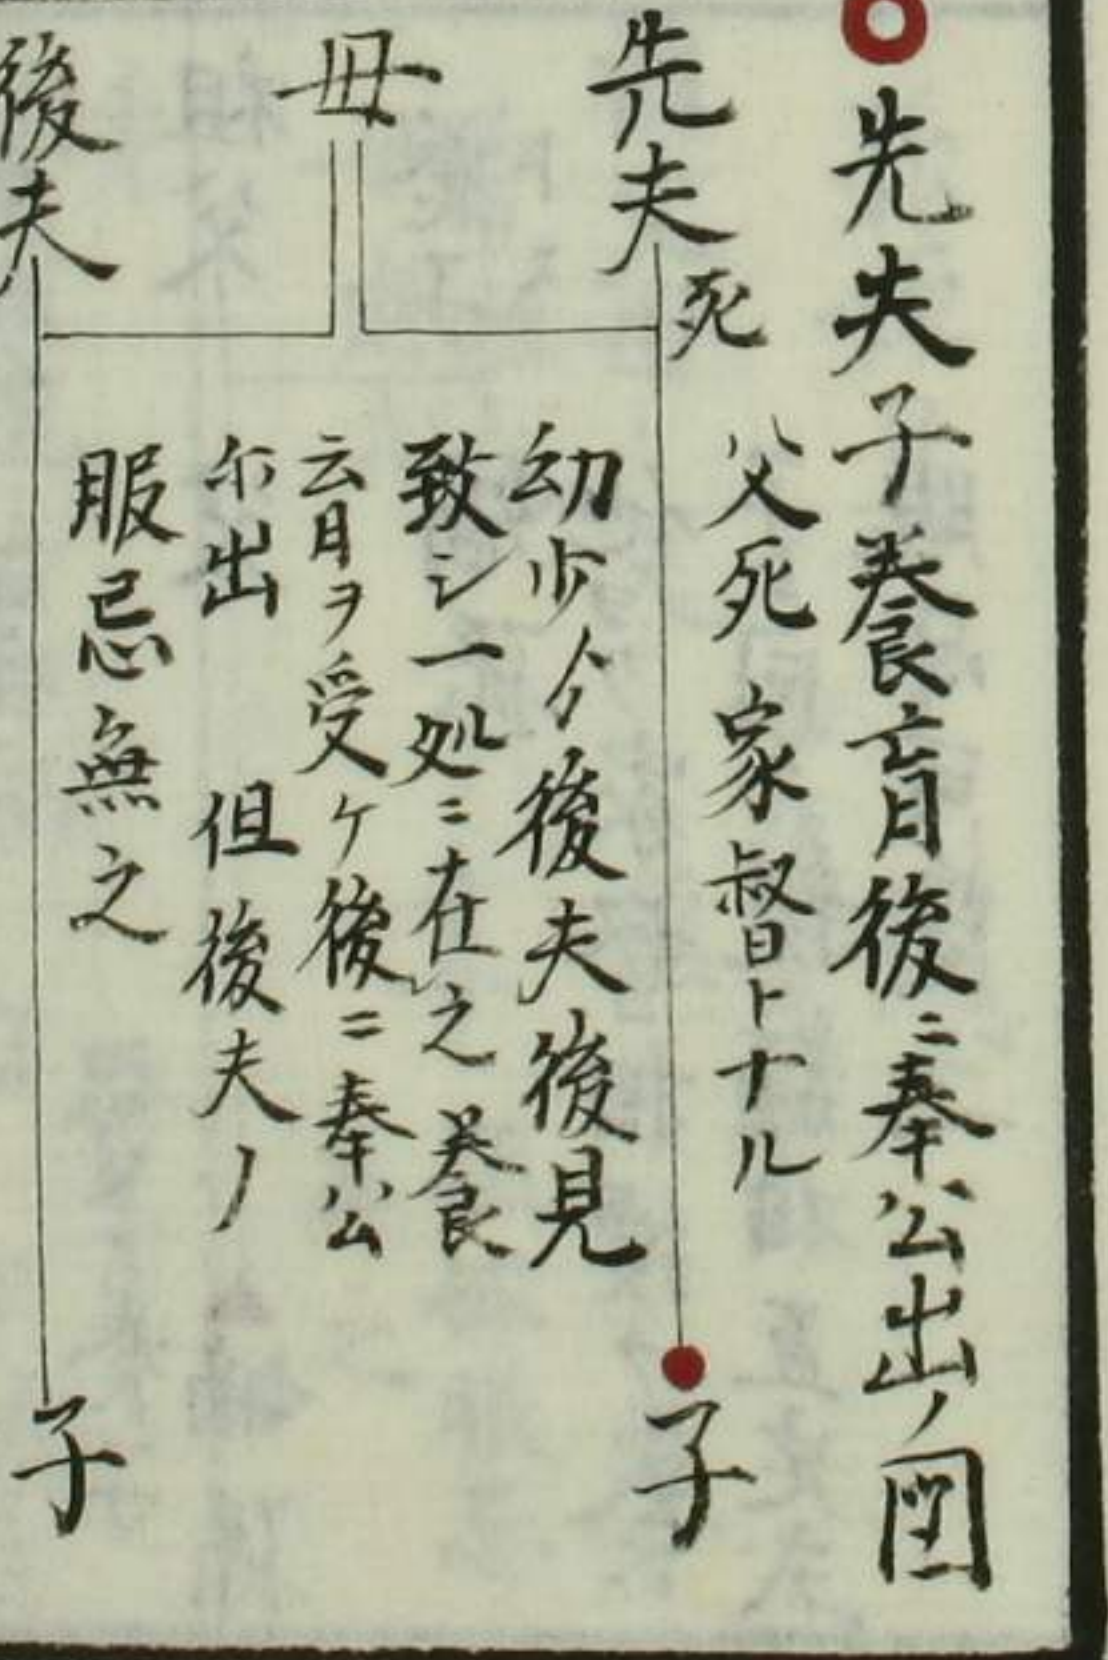 先夫子養育後ニ奉公出ノ図
先夫 死
父死 家督トナル
幼少ゟ後夫後見
致シ一処ニ在之 養
育ヲ受ケ後ニ奉公
尓出 但後夫ノ
服忌無之
子
母
後夫
子